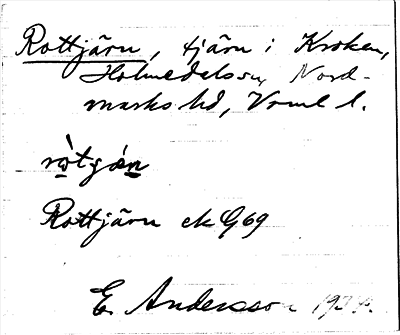 Rottjärn, tjärn i Kroken,
Holmedals sn, Nord-
marks hd, Vrml l.
Rottjärn ek G69
E. Andersson